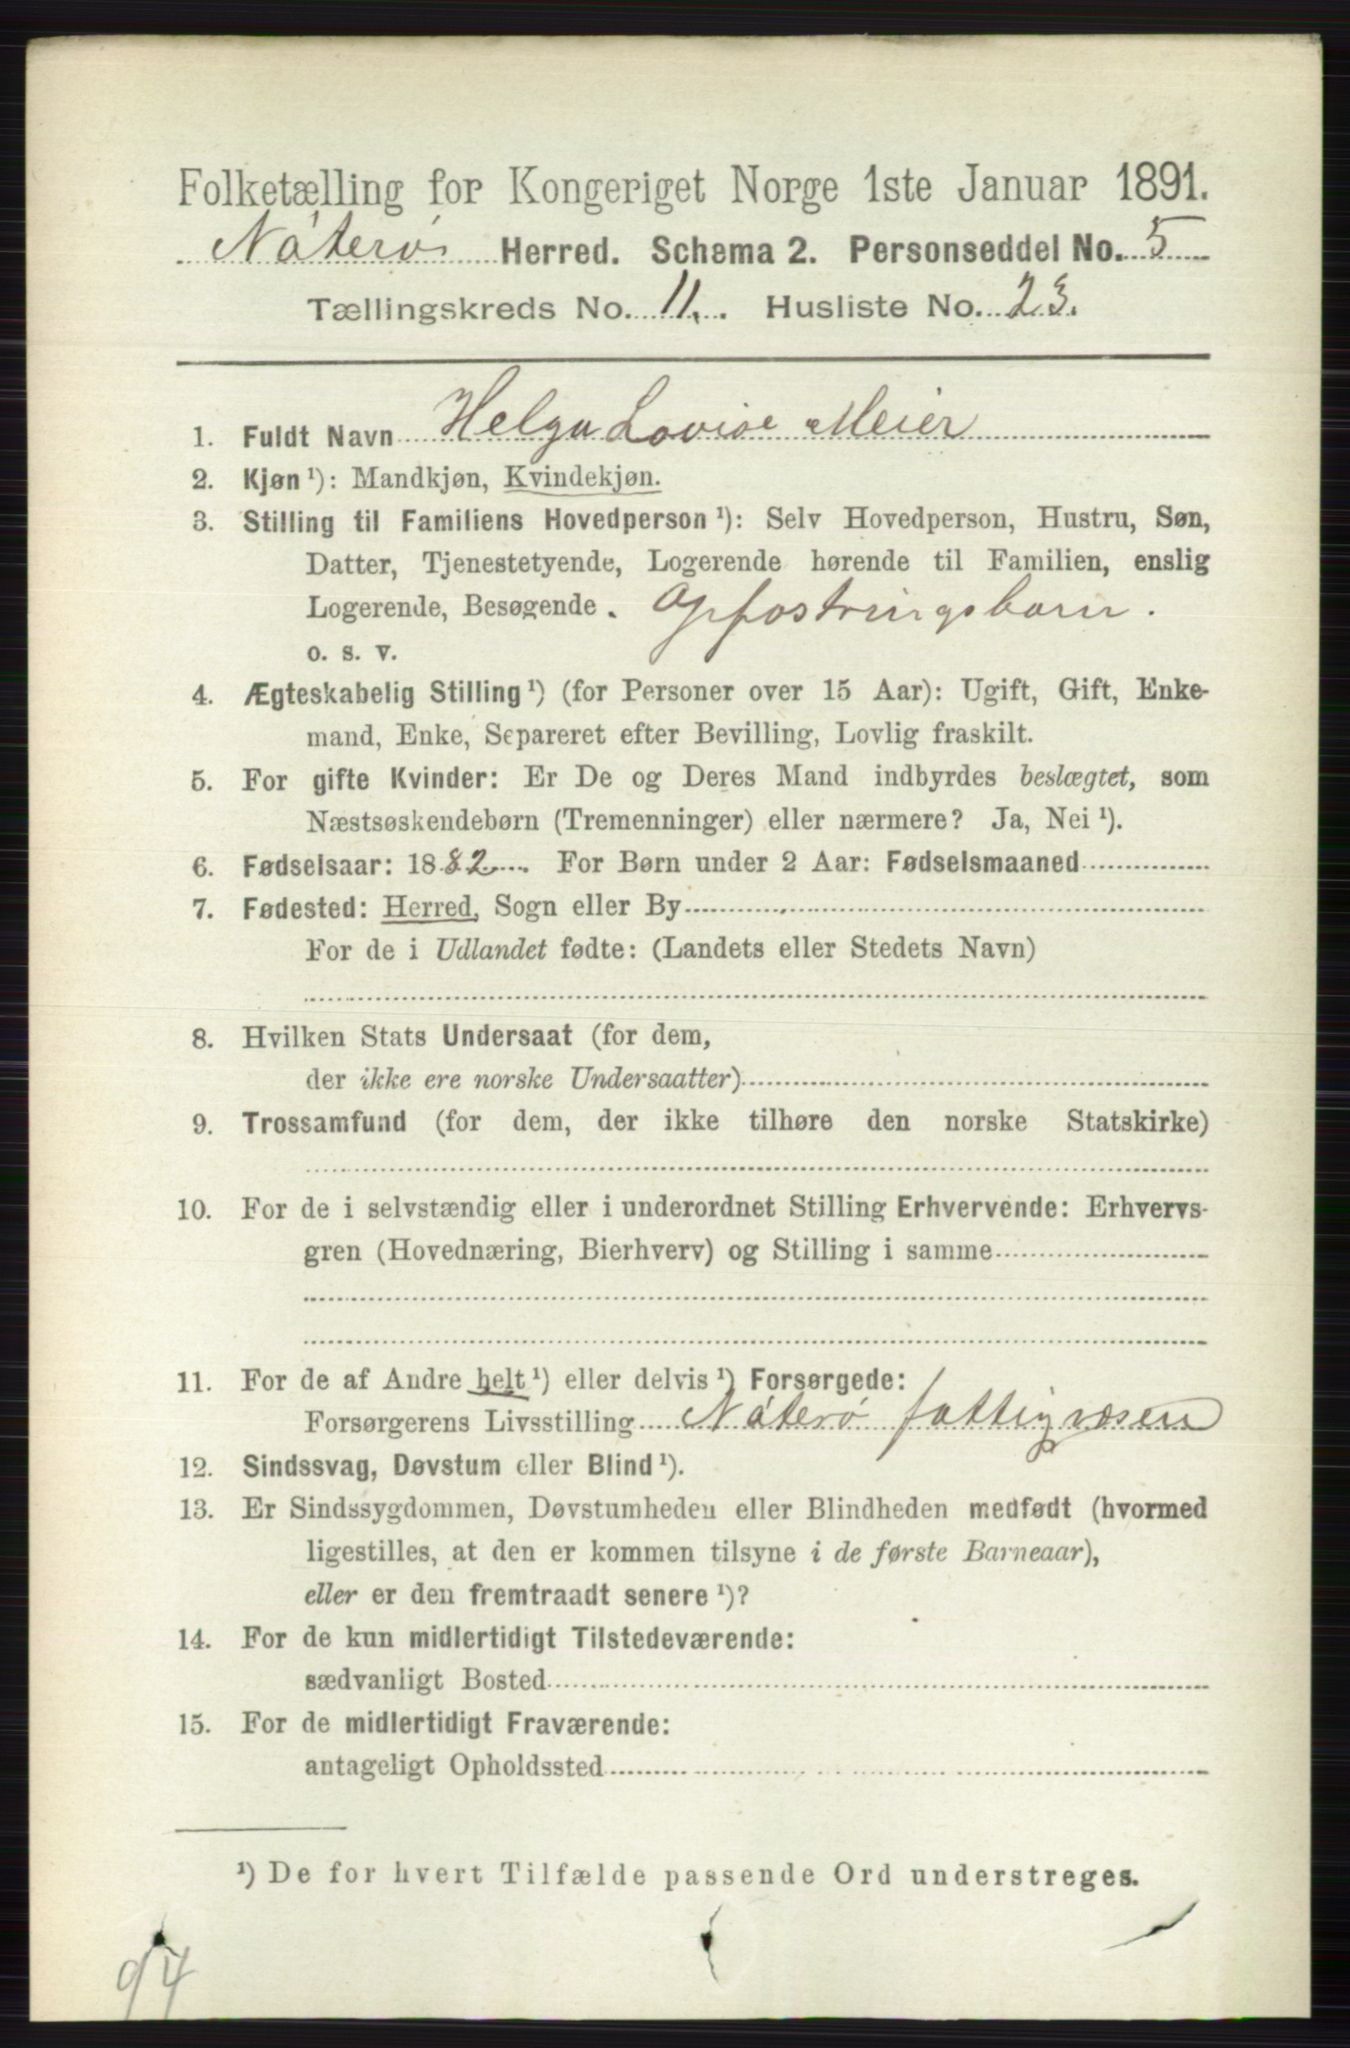 Folketælling for Kongeriget Norge 1ste Januar 1891.
Nøterø Herred. Schema 2. Personseddel No. 5
Tællingskreds No. 11. Husliste No. 23.
1. Fuldt Navn Helga Lovise Meier
2. Kjøn ¹): Mandkjøn, Kvindekjøn.
3. Stilling til Familiens Hovedperson ¹): Selv Hovedperson, Hustru, Søn,
Datter, Tjenestetyende, Logerende hørende til Familien, enslig
Logerende, Besøgende. Opfostringsbarn.
o. s. v.
4. Ægteskabelig Stilling ¹) (for Personer over 15 Aar): Ugift, Gift, Enke-
mand, Enke, Separeret efter Bevilling, Lovlig fraskilt.
5. For gifte Kvinder: Er De og Deres Mand indbyrdes beslægtet, som
Næstsøskendebørn (Tremenninger) eller nærmere? Ja, Nei ¹).
6. Fødselsaar: 1882. For Børn under 2 Aar: Fødselsmaaned
7. Fødested: Herred, Sogn eller By
For de i Udlandet fødte: (Landets eller Stedets Navn)
8. Hvilken Stats Undersaat (for dem,
der ikke ere norske Undersaatter)
9. Trossamfund (for dem, der ikke tilhøre den norske Statskirke)
10. For de i selvstændig eller i underordnet Stilling Erhvervende: Erhvervs-
gren (Hovednæring, Bierhverv) og Stilling i samme
11. For de af Andre helt ¹) eller delvis ¹) Forsørgede:
Forsørgerens Livsstilling Nøterø fattigvæsen
12. Sindssvag, Døvstum eller Blind ¹).
13. Er Sindssygdommen, Døvstumheden eller Blindheden medfødt (hvormed
ligestilles, at den er kommen tilsyne i de første Barneaar),
eller er den fremtraadt senere ¹)?
14. For de kun midlertidigt Tilstedeværende:
sædvanligt Bosted
15. For de midlertidigt Fraværende:
antageligt Opholdssted
¹) De for hvert Tilfælde passende Ord understreges.
94